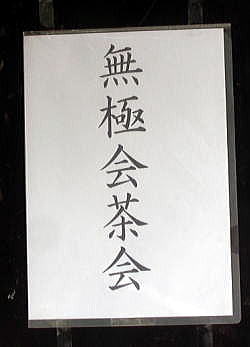 無極会茶会